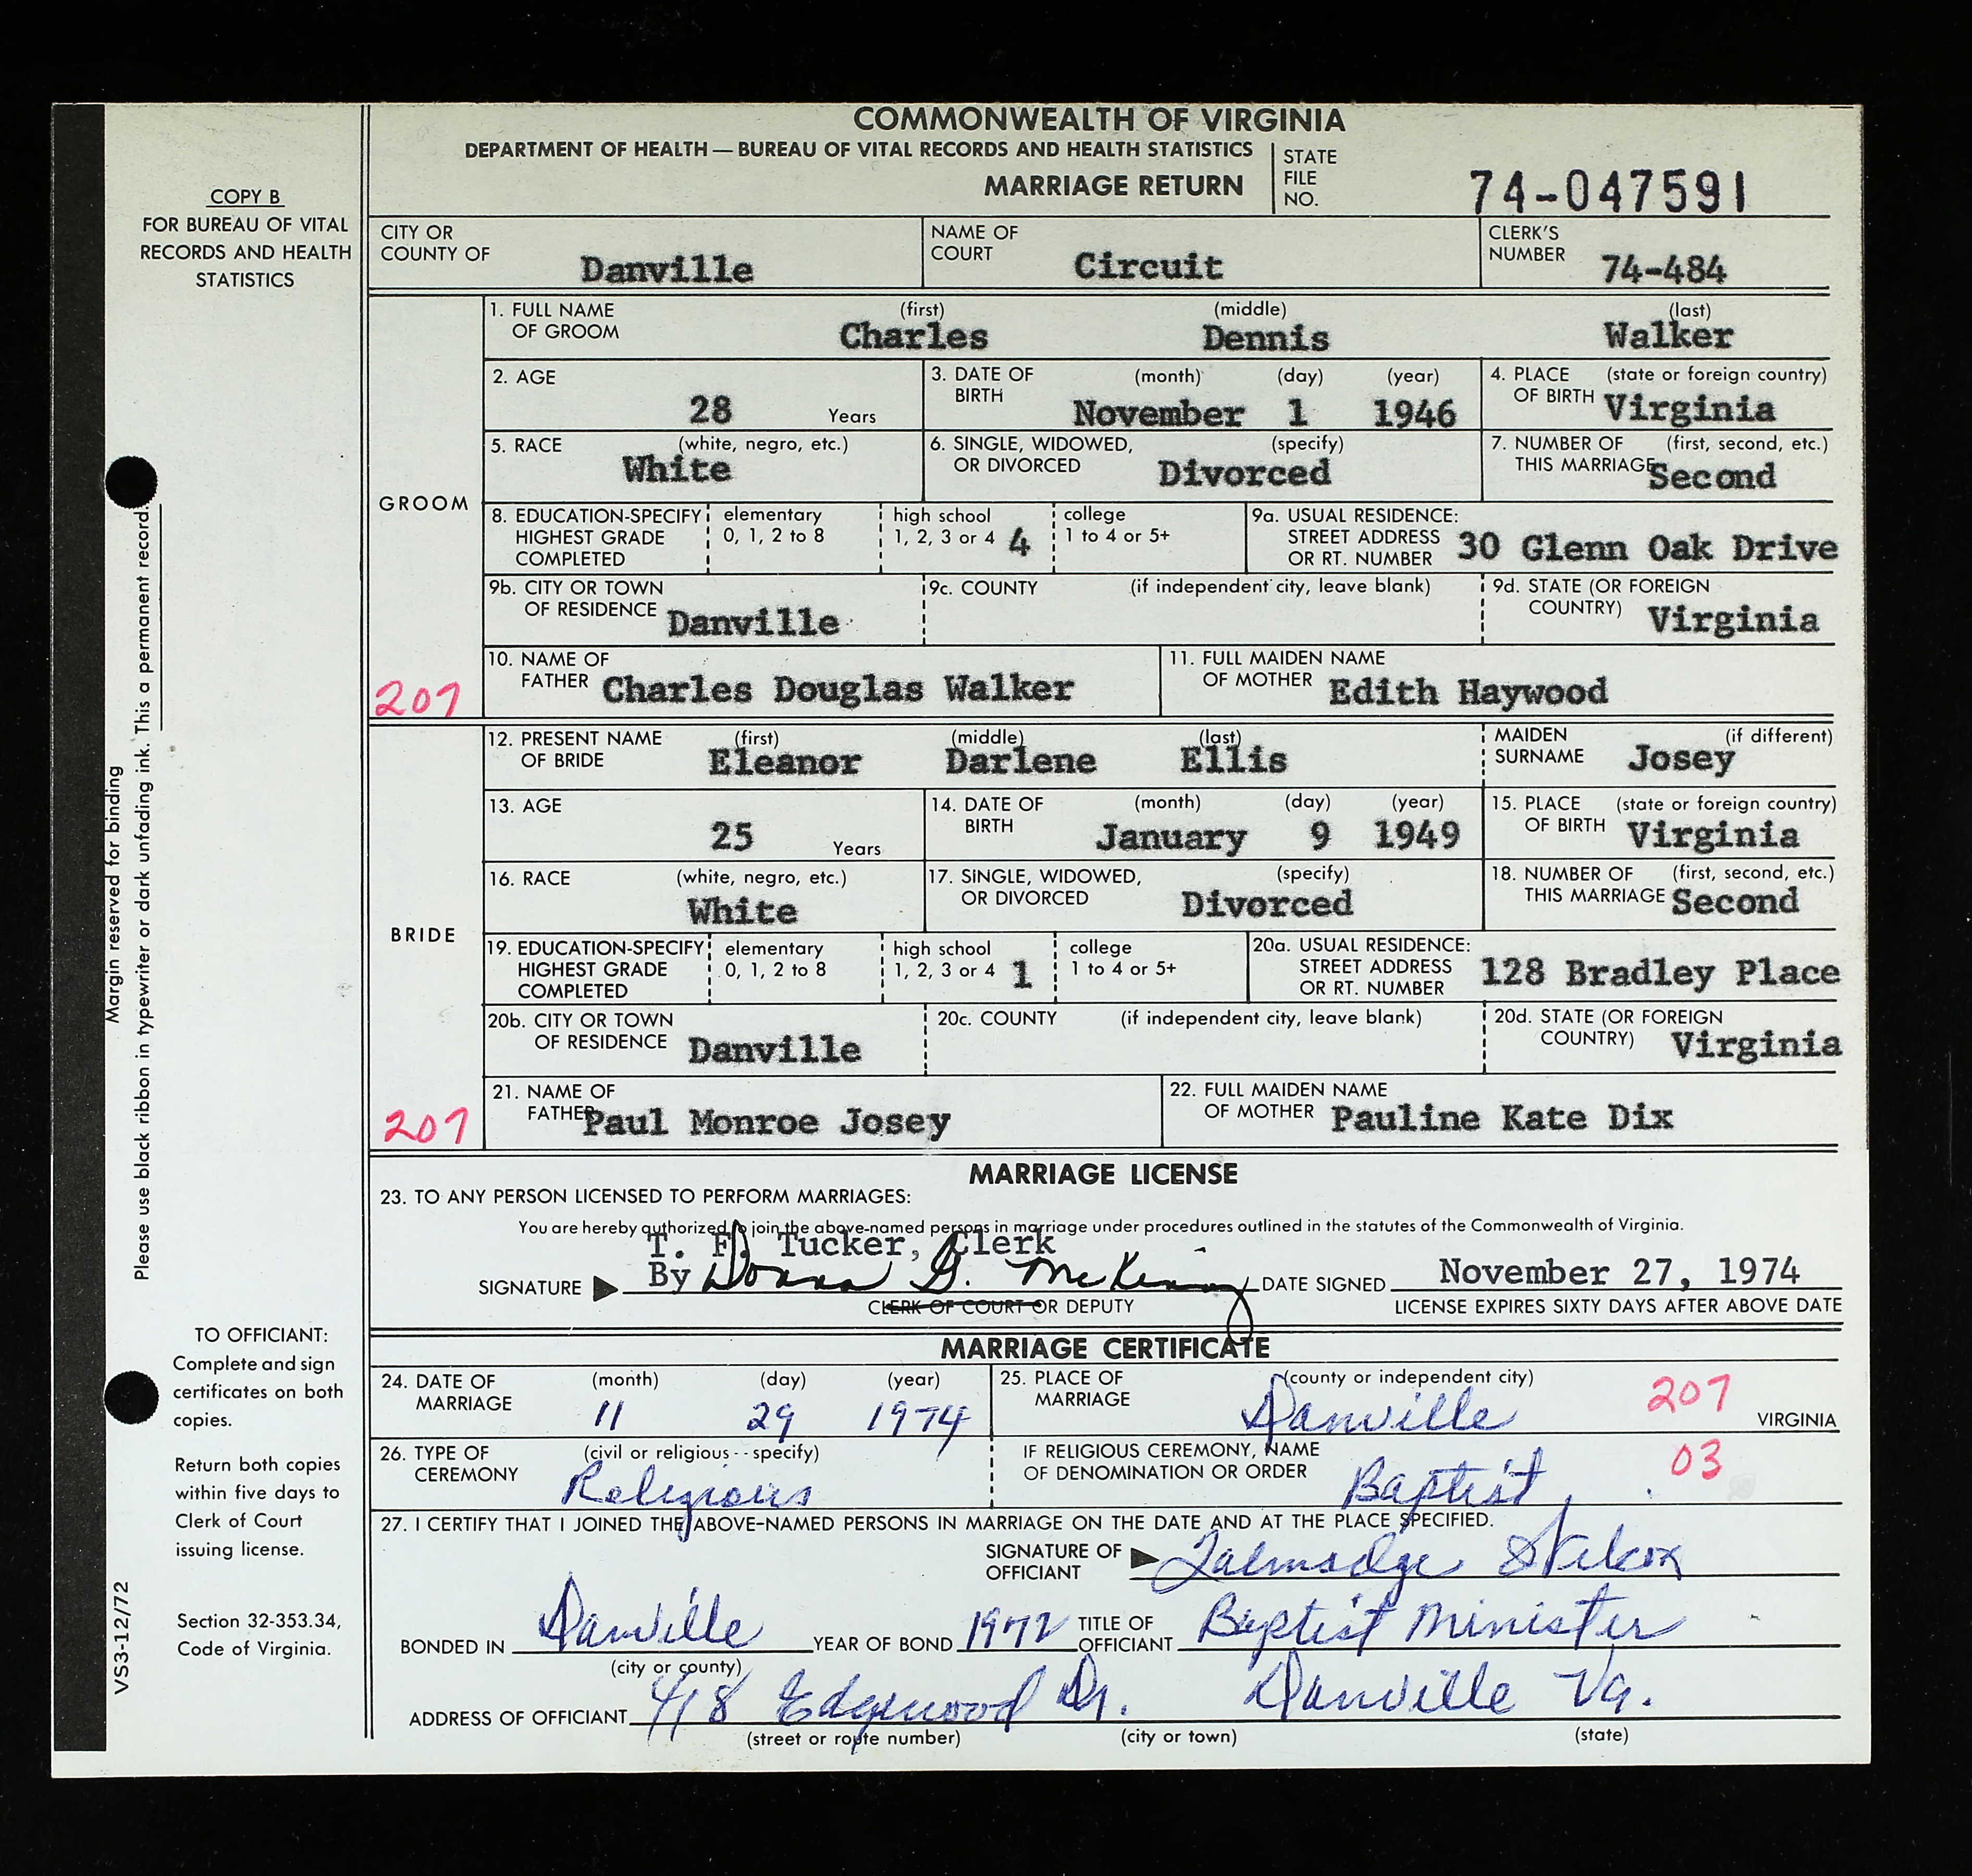 COMMONWEALTH OF VIRGINIA
DEPARTMENT OF HEALTH — BUREAU OF VITAL RECORDS AND HEALTH STATISTICS
MARRIAGE RETURN
STATE FILE NO. 74-047591
COPY B
FOR BUREAU OF VITAL
RECORDS AND HEALTH
STATISTICS
CITY OR COUNTY OF Danville
NAME OF COURT Circuit
CLERK'S NUMBER 74-484
GROOM
207
1. FULL NAME OF GROOM (first) Charles (middle) Dennis (last) Walker
2. AGE 28 Years
3. DATE OF BIRTH (month) November (day) 1 (year) 1946
4. PLACE OF BIRTH (state or foreign country) Virginia
5. RACE (white, negro, etc.) White
6. SINGLE, WIDOWED, OR DIVORCED (specify) Divorced
7. NUMBER OF THIS MARRIAGE (first, second, etc.) Second
8. EDUCATION-SPECIFY HIGHEST GRADE COMPLETED elementary 0, 1, 2 to 8 high school 1, 2, 3 or 4 4 college 1 to 4 or 5+
9a. USUAL RESIDENCE: STREET ADDRESS OR RT. NUMBER 30 Glenn Oak Drive
9b. CITY OR TOWN OF RESIDENCE Danville
9c. COUNTY (if independent city, leave blank)
9d. STATE (OR FOREIGN COUNTRY) Virginia
10. NAME OF FATHER Charles Douglas Walker
11. FULL MAIDEN NAME OF MOTHER Edith Haywood
BRIDE
207
12. PRESENT NAME OF BRIDE (first) Eleanor (middle) Darlene (last) Ellis
MAIDEN SURNAME (if different) Josey
13. AGE 25 Years
14. DATE OF BIRTH (month) January (day) 9 (year) 1949
15. PLACE OF BIRTH (state or foreign country) Virginia
16. RACE (white, negro, etc.) White
17. SINGLE, WIDOWED, OR DIVORCED (specify) Divorced
18. NUMBER OF THIS MARRIAGE (first, second, etc.) Second
19. EDUCATION-SPECIFY HIGHEST GRADE COMPLETED elementary 0, 1, 2 to 8 high school 1, 2, 3 or 4 1 college 1 to 4 or 5+
20a. USUAL RESIDENCE: STREET ADDRESS OR RT. NUMBER 128 Bradley Place
20b. CITY OR TOWN OF RESIDENCE Danville
20c. COUNTY (if independent city, leave blank)
20d. STATE (OR FOREIGN COUNTRY) Virginia
21. NAME OF FATHER Paul Monroe Josey
22. FULL MAIDEN NAME OF MOTHER Pauline Kate Dix
MARRIAGE LICENSE
23. TO ANY PERSON LICENSED TO PERFORM MARRIAGES:
You are hereby authorized to join the above-named persons in marriage under procedures outlined in the statutes of the Commonwealth of Virginia.
T. F. Tucker, Clerk
SIGNATURE By Donna G. McKinney DATE SIGNED November 27, 1974
CLERK OF COURT OR DEPUTY
LICENSE EXPIRES SIXTY DAYS AFTER ABOVE DATE
MARRIAGE CERTIFICATE
24. DATE OF MARRIAGE (month) 11 (day) 29 (year) 1974
25. PLACE OF MARRIAGE (county or independent city) Danville 207 VIRGINIA
26. TYPE OF CEREMONY (civil or religious -- specify) Religious
IF RELIGIOUS CEREMONY, NAME OF DENOMINATION OR ORDER Baptist 03
27. I CERTIFY THAT I JOINED THE ABOVE-NAMED PERSONS IN MARRIAGE ON THE DATE AND AT THE PLACE SPECIFIED.
SIGNATURE OF OFFICIANT Talmadge
BONDED IN Danville YEAR OF BOND 1972 TITLE OF OFFICIANT Baptist Minister
(city or county)
ADDRESS OF OFFICIANT 418 Edgewood Dr. Danville Va.
(street or route number) (city or town) (state)
Margin reserved for binding
Please use black ribbon in typewriter or dark unfading ink. This a permanent record.
TO OFFICIANT:
Complete and sign
certificates on both
copies.
Return both copies
within five days to
Clerk of Court
issuing license.
Section 32-353.34,
Code of Virginia.
VS3-12/72